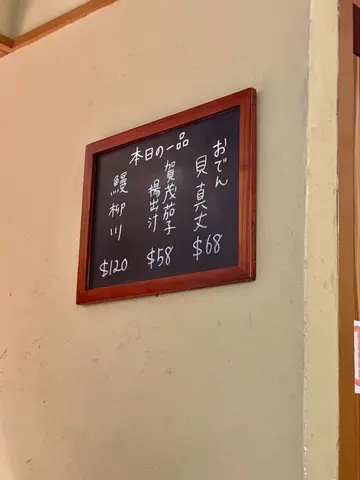 本日の一品
おでん
貝真丈
$68
賀茂茄子
揚出汁
$58
鰻柳川
$120